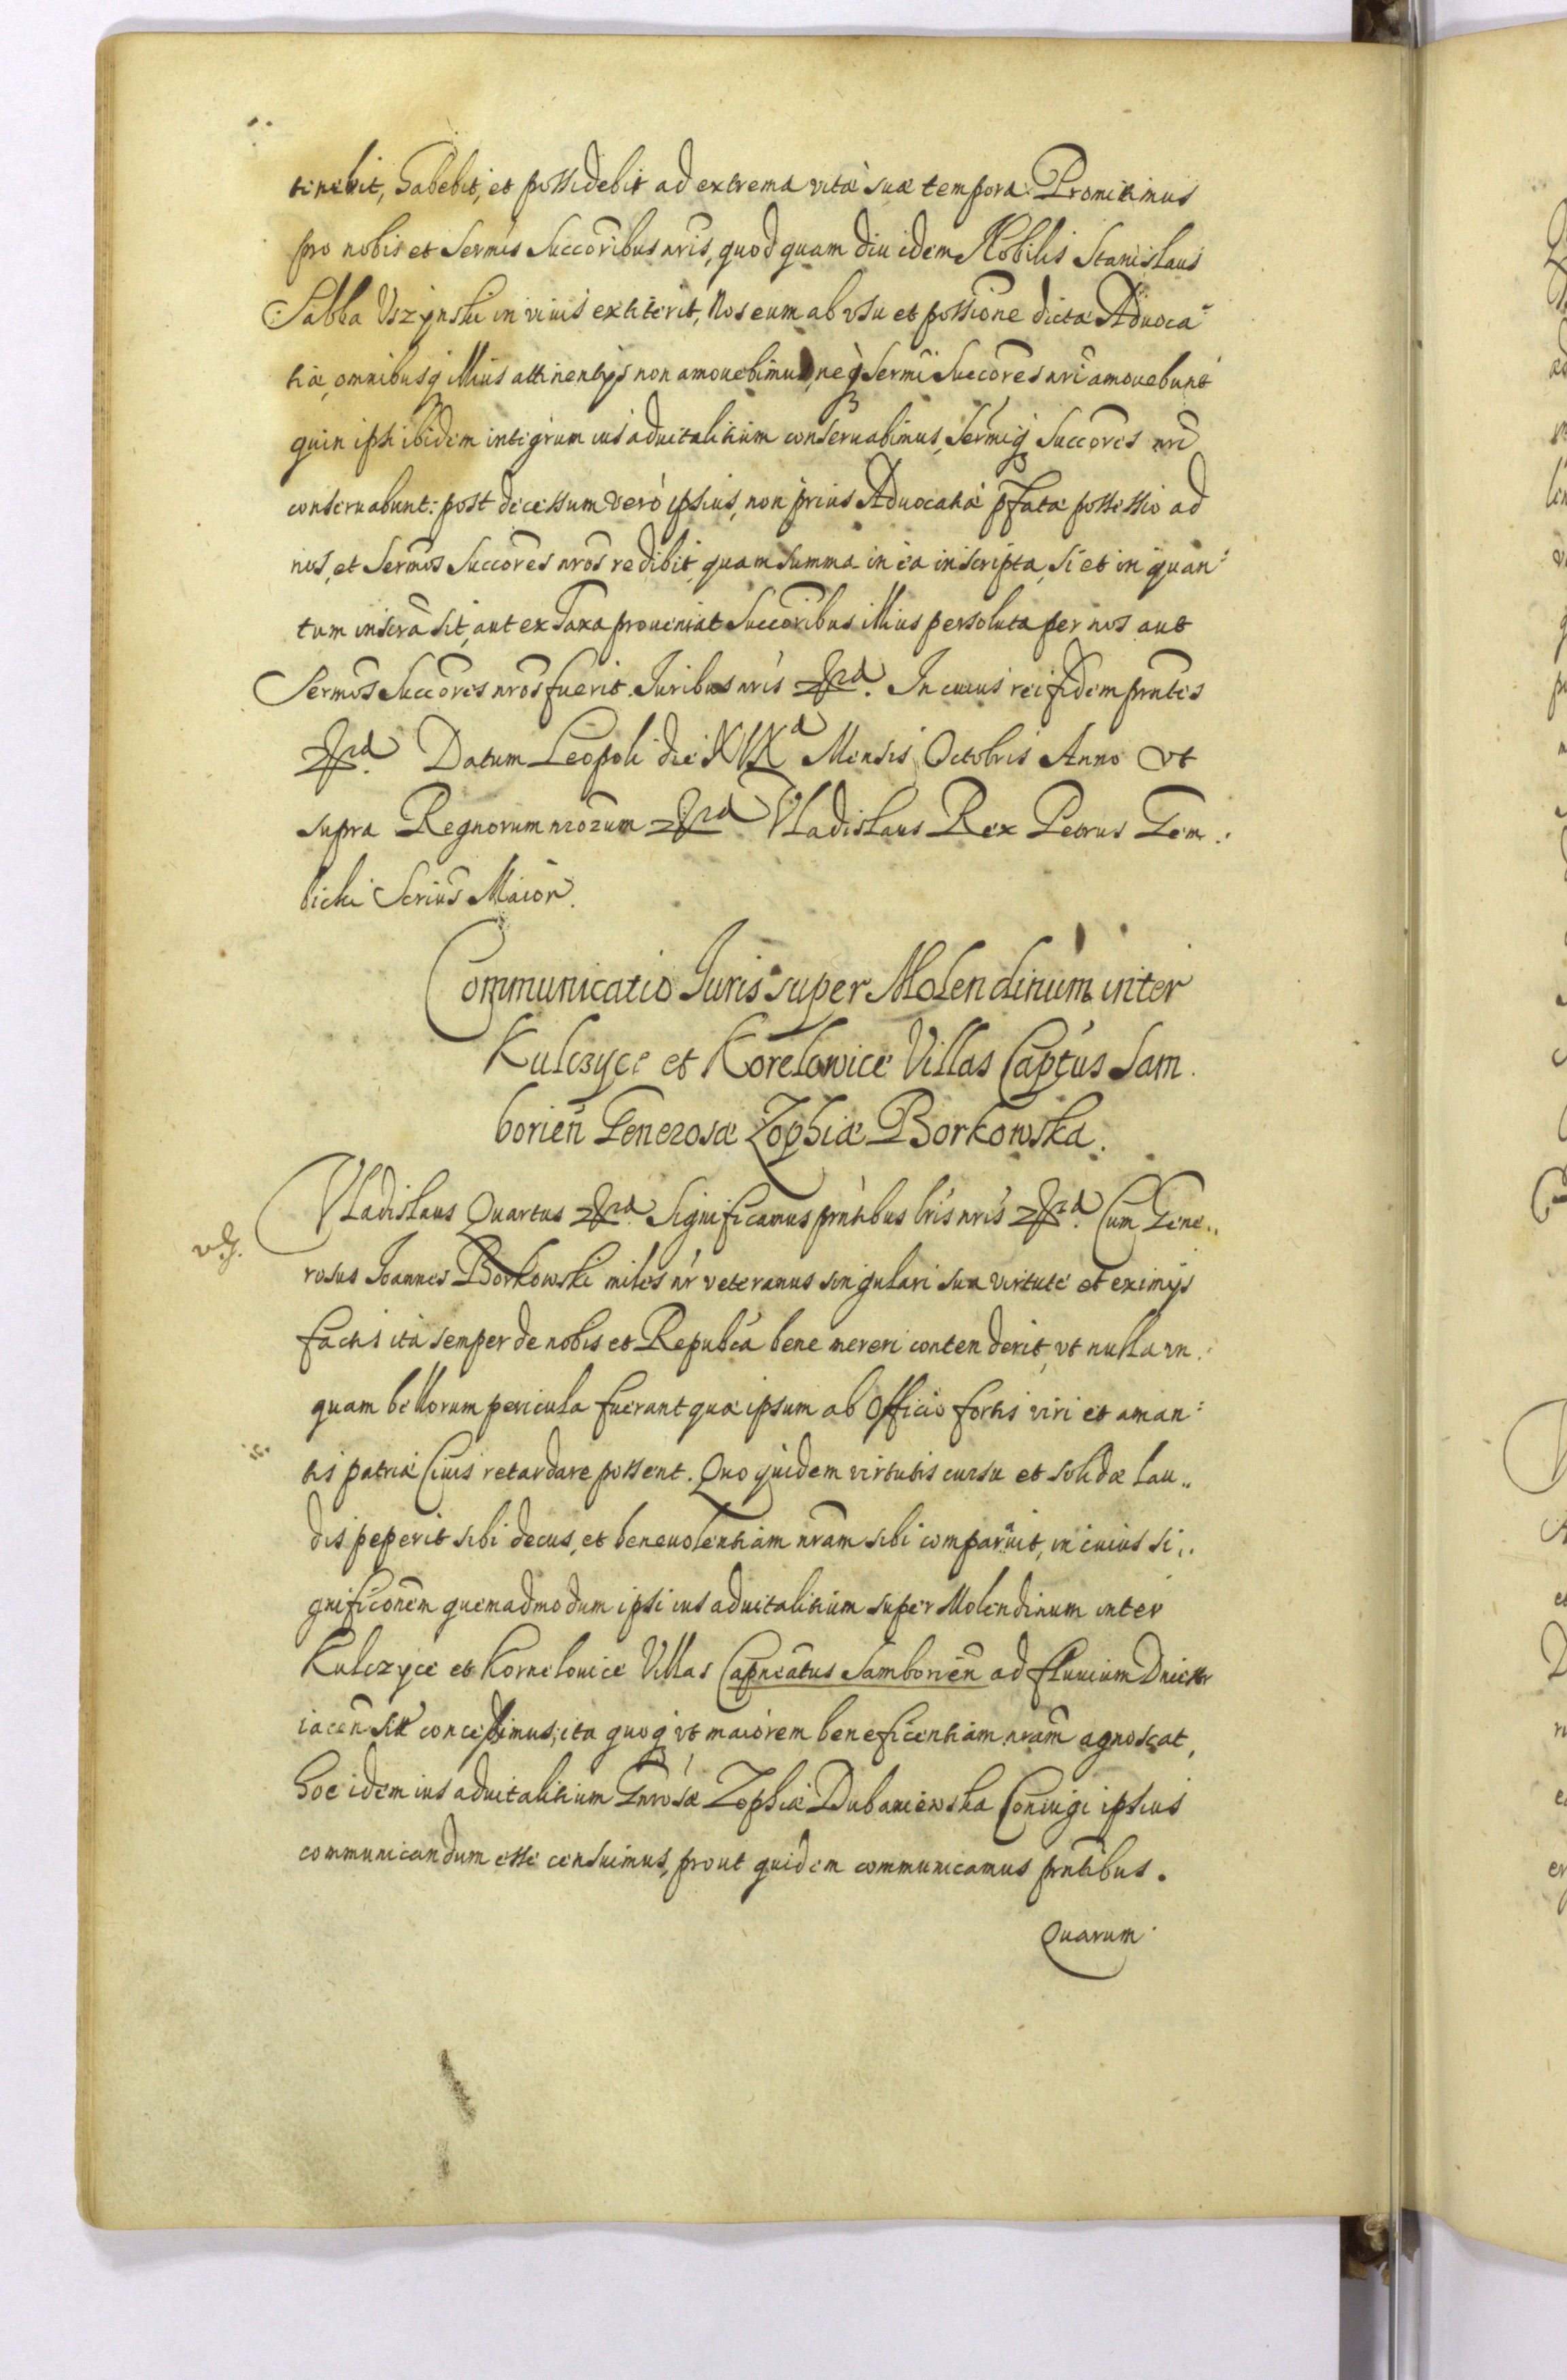 tenebit, habebit, et possidebit ad extrema vitæ suæ tempora. Promittimus
pro nobis et Sermis Succoribus nris, quod quam diu idem Nobilis Stanislaus
Sabba Vszynski in viuis extiterit, Nos eum ab vsu et possione dictæ Aduoca=
tiæ, omnibusq illius attinentijs non amouebimus, neq Sermi Succores nri amouebunt
quin ipsi ibidem integrum ius aduitalitium conseruabimus, Sermiq Succores nri
conseruabunt: post decessum vero ipsius, non prius Aduocatiæ pfatæ possessio ad
nos, et Sermos Succores nros redibit, quam summa in ea inscripta, si et in quan=
tum inscra sit, aut ex Taxa proueniat Succoribus illius persoluta per nos aut
Sermos Succores nros fuerit. Juribus nris &ra. In cuius rei fidem prntes
&ra. Datum Leopoli die XIX a Mensis Octobris Anno vt
supra Regnorum nrorum &ra Vladislaus Rex Petrus Gem:
bicki Scrius Maior.
Communicatio Juris super Molendinum inter
Kulczyce et Korelowice Villas Captus Sam
borien Generosæ Zophiæ Borkowska.
Vladislaus Quartus &ra. Significamus prntibus lris nris &ra. Cum Gene..
rosus Joannes Borkowski miles nr veteranus singulari sua virtute et eximijs
factis ita semper de nobis et Republca bene mereri contenderit, vt nulla vn:
quam bellorum pericula fuerant quæ ipsum ab officio fortis viri et aman=
tis patriæ Ciuis retardare possent. Quo quidem virtutis cursu et solidæ lau..
dis peperit sibi decus, et beneuolentiam nram sibi comparauit, in cuius si..
gnificonem quemadmodum ipsi ius aduitalitium super Molendinum inter
Kulczyce et Kornelouice Villas Capneatus Samborien ad fluuium Dniestr
iacen sit concessimus, ita quoq vt maiorem beneficentiam nram agnoscat,
hoc idem ius aduitalitium Gnrosæ Zophiæ Dubaniewska Coniugi ipsius
communicandum esse censuimus, prout quidem communicamus prntibus.
Quarum